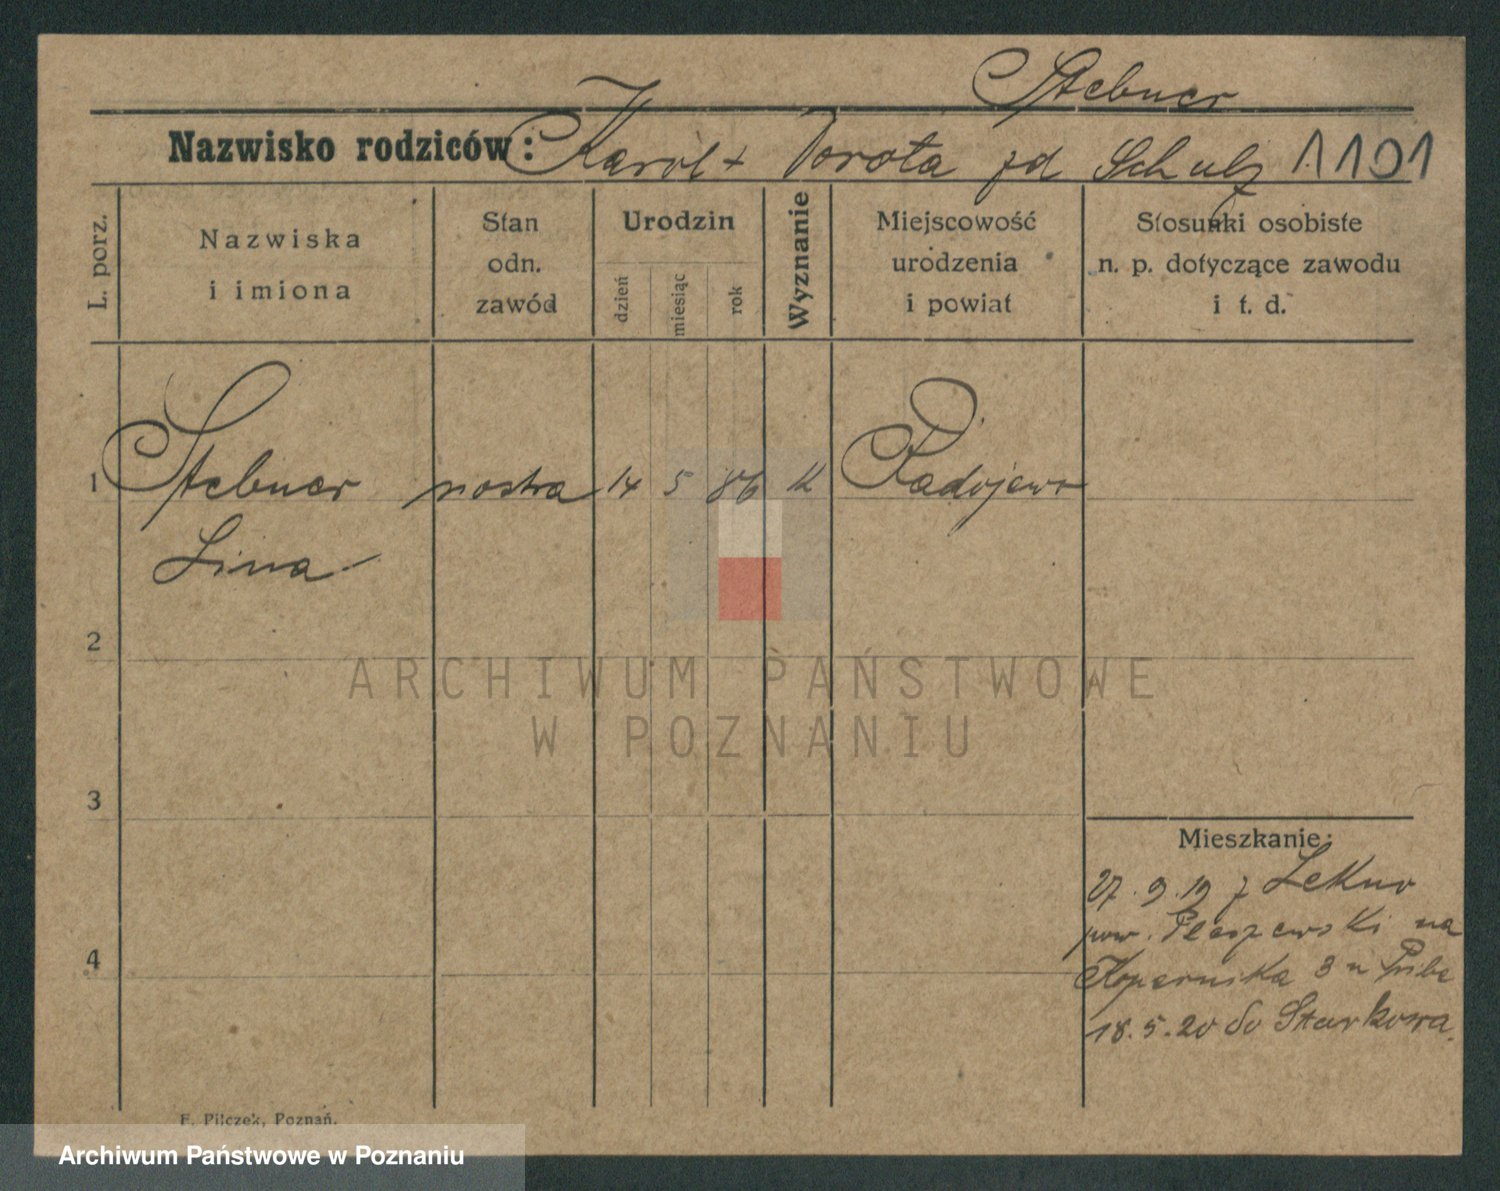 Stebner
Nazwisko rodziców: Karol + Dorota zd Schulz 1101
L. porz.
Nazwiska
i imiona
Stan
odn.
zawód
Urodzin
dzień
miesiąc
rok
Wyznanie
Miejscowość
urodzenia
i powiat
Stosunki osobiste
n. p. dotyczące zawodu
i t. d.
1 Stebner 14 5 86 Radojewo
Lina
2
ARCHIWUM PAŃSTWOWE
W POZNANIU
3
Mieszkanie:
27.9.19 z Lekno
pow. Pleszewski na
4
Kopernika 3
18.5.20 do Starkowa.
F. Pilczek, Poznań.
Archiwum Państwowe w Poznaniu